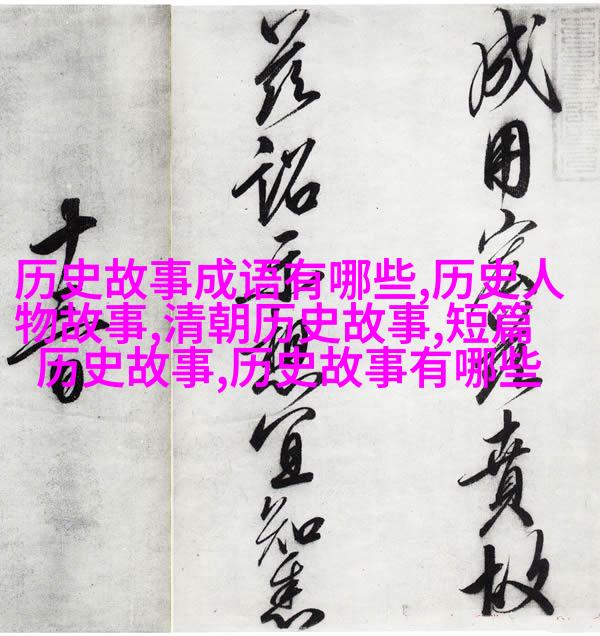 历史故事成语有哪些,历史人
物故事,清朝历史故事,短篇
历史故事,历史故事有哪些
成用宏賁故
茲詔示想宜知悉
十